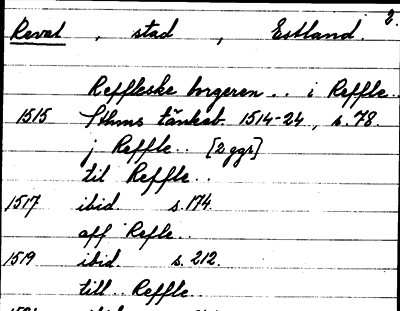 2.
Reval , stad , Estland.
Reffleske borgeren .. i Reffle..
1515 Sthms tänkeb. 1514-24, s. 78.
j Reffle.. [2 ggr]
til Reffle..
1517 ibid. s. 174.
aff Refle..
1519 ibid. s. 212.
till.. Reffle..